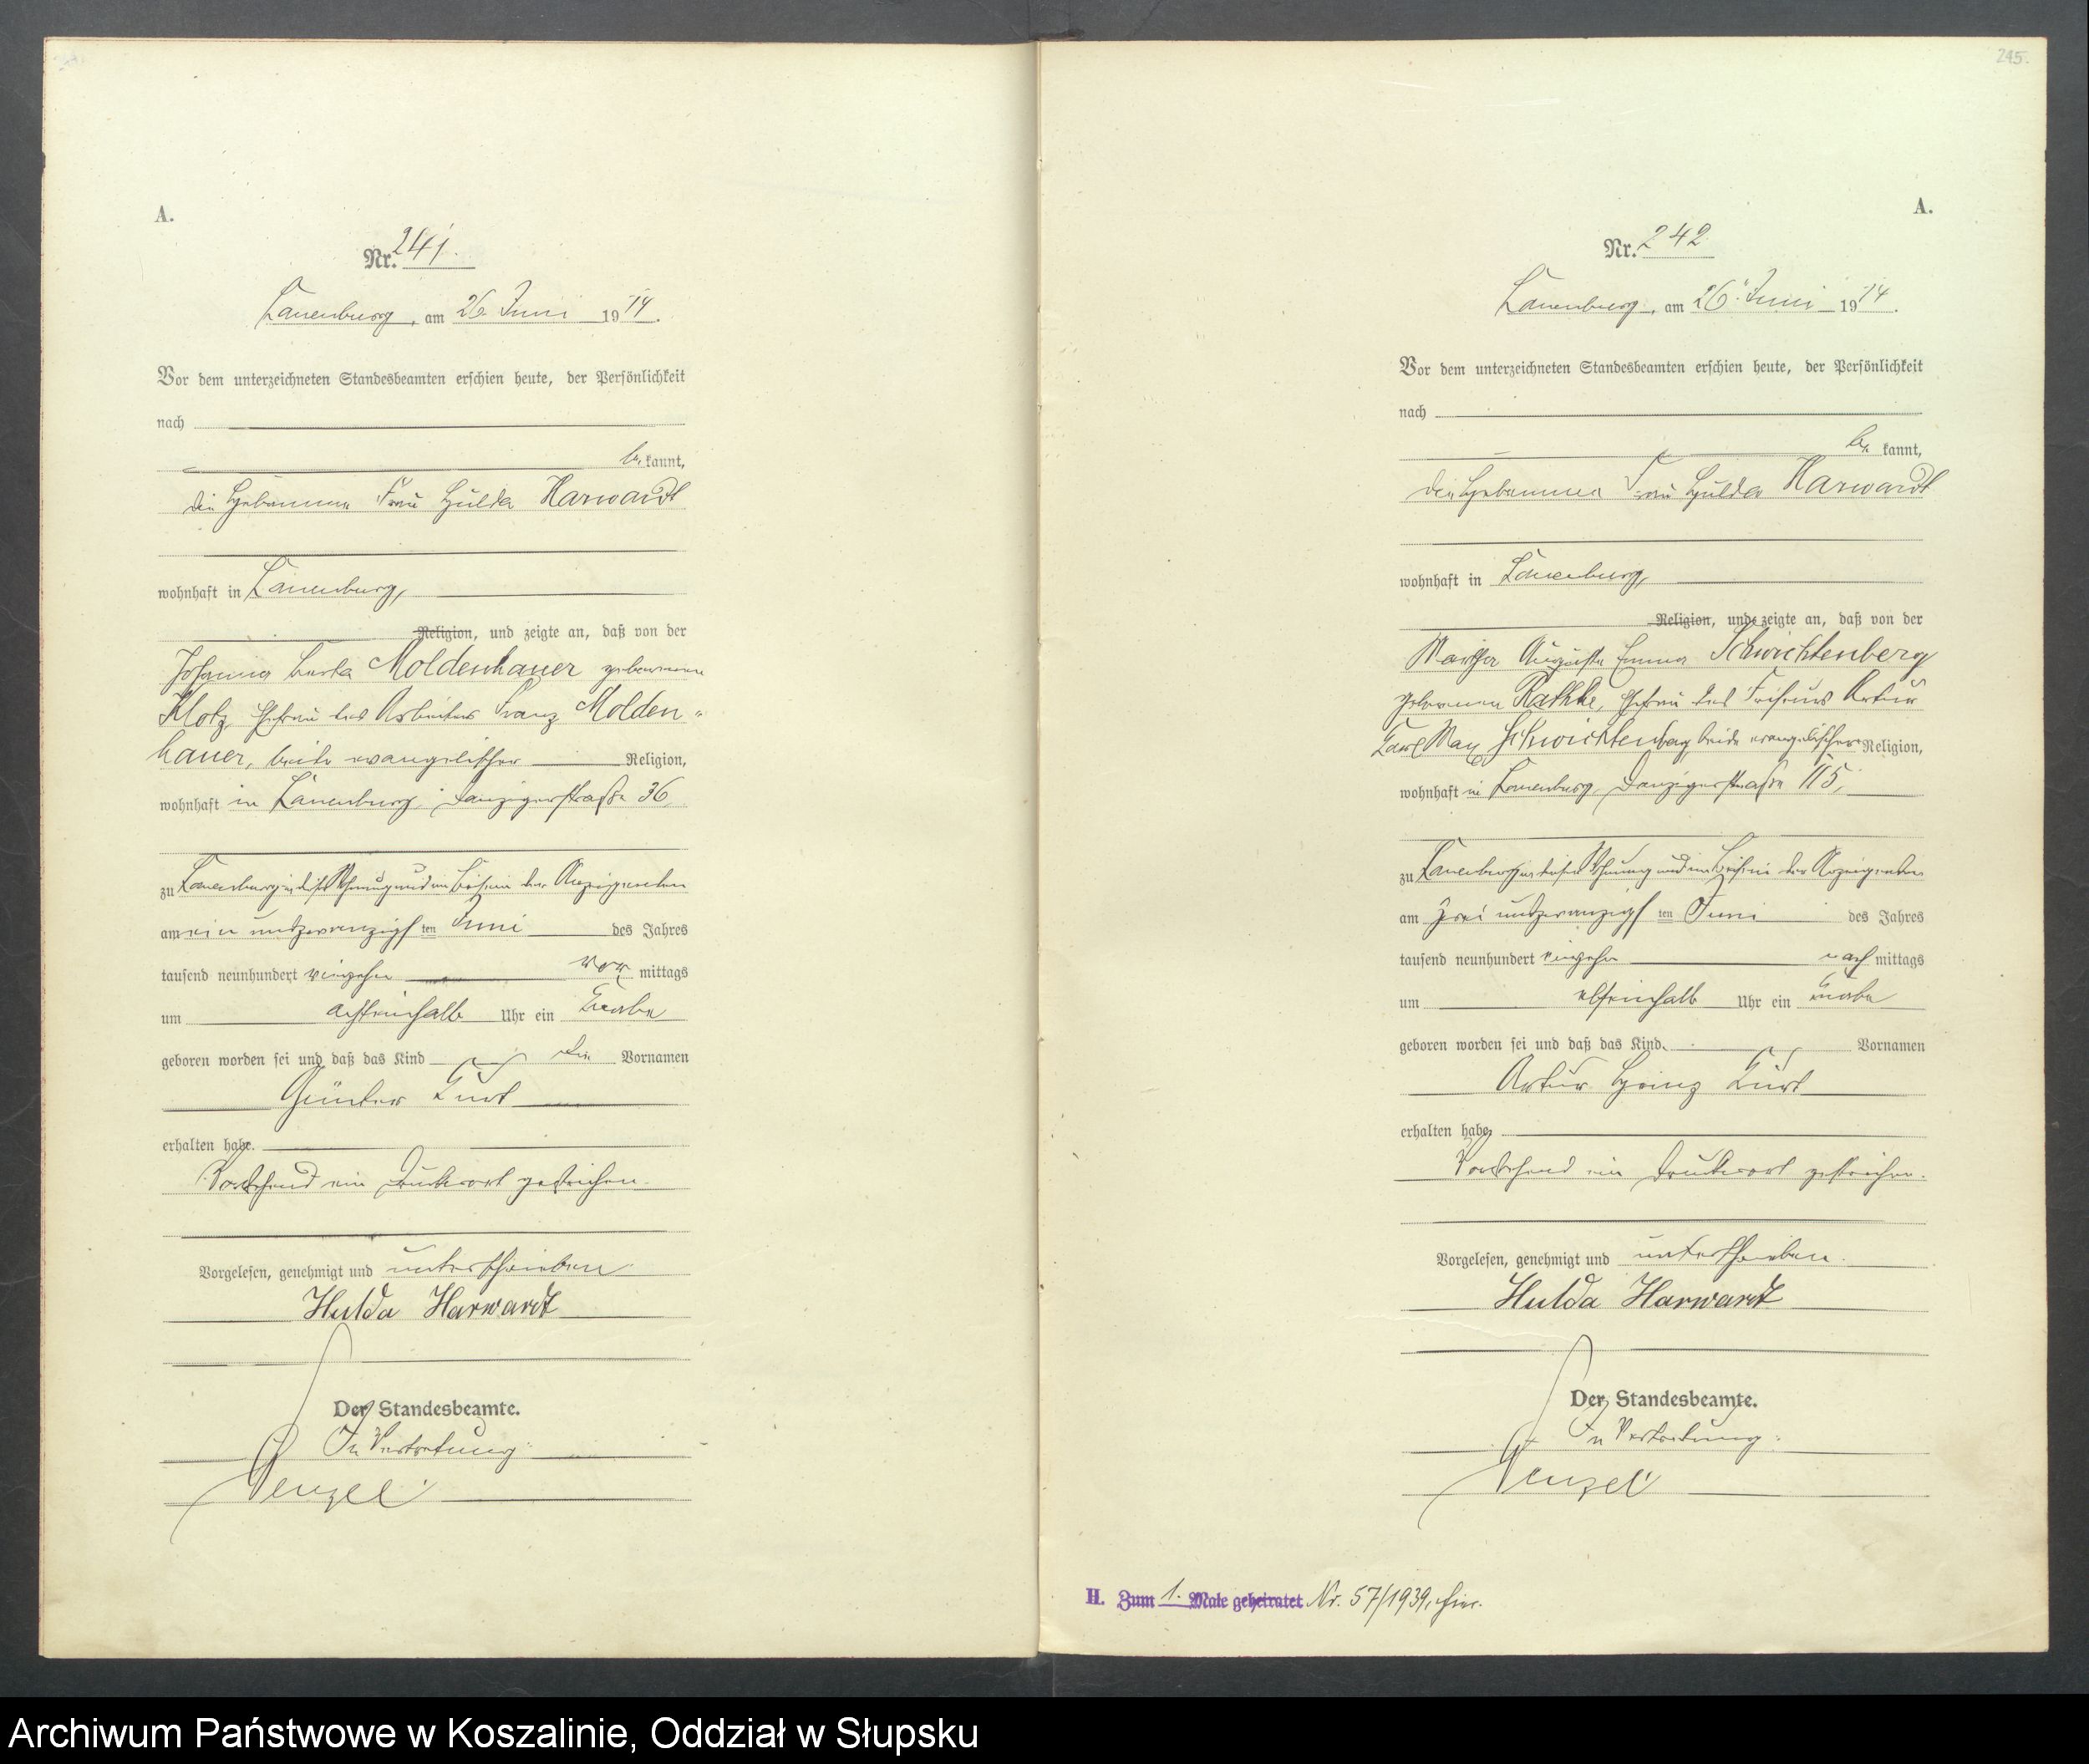 A.
Nr. 241.
Lauenburg, am 26. Juni 1914.
Vor dem unterzeichneten Standesbeamten erschien heute, der Persönlichkeit
nach
be kannt,
die Hebamme Frau Hulda Harwardt
wohnhaft in Lauenburg,
Religion, und zeigte an, daß von der
Johanna Berta Moldenhauer geborenen
Klotz, Ehefrau des Arbeiters Franz Molden-
hauer, beide evangelischer Religion,
wohnhaft in Lauenburg, Danzigerstraße 36,
zu Lauenburg in dieser Wohnung und im Beisein der Anzeigenden
am ein und zwanzigsten Juni des Jahres
tausend neunhundert vierzehn vor mittags
um achteinhalb Uhr ein Knabe
geboren worden sei und daß das Kind die Vornamen
Günter Kurt
erhalten habe.
Vorstehend ein Druckwort gestrichen.
Vorgelesen, genehmigt und unterschrieben
Hulda Harwardt
Der Standesbeamte.
In Vertretung:
Wenzel
245.
A.
Nr. 242
Lauenburg, am 26. Juni 1914.
Vor dem unterzeichneten Standesbeamten erschien heute, der Persönlichkeit
nach
be kannt,
die Hebamme Frau Hulda Harwardt
wohnhaft in Lauenburg,
Religion, und zeigte an, daß von der
Martha Auguste Emma Schwichtenberg
geborenen Rathke, Ehefrau des Friseurs Artur
Karl Max Schwichtenberg, beide evangelischer Religion,
wohnhaft in Lauenburg, Danzigerstraße 115,
zu Lauenburg in dieser Wohnung und im Beisein der Anzeigenden
am zwei und zwanzigsten Juni des Jahres
tausend neunhundert vierzehn nach mittags
um elfeinhalb Uhr ein Knabe
geboren worden sei und daß das Kind Vornamen
Artur Heinz Kurt
erhalten habe
Vorstehend ein Druckwort gestrichen.
Vorgelesen, genehmigt und unterschrieben.
Hulda Harwardt
Der Standesbeamte.
In Vertretung:
Wenzel
H. Zum 1. Male geheiratet Nr. 57/1939, hier.
Archiwum Państwowe w Koszalinie, Oddział w Słupsku